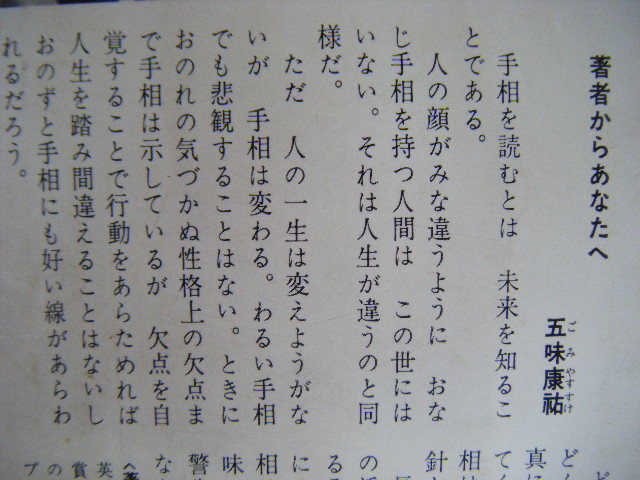 著者からあなたへ
五味康祐
ごみやすすけ
手相を読むとは　未来を知るこ
とである。
人の顔がみな違うように　おな
じ手相を持つ人間は　この世には
いない。それは人生が違うのと同
様だ。
ただ　人の一生は変えようがな
いが　手相は変わる。わるい手相
でも悲観することはない。ときに
おのれの気づかぬ性格上の欠点ま
で手相は示しているが　欠点を自
覚することで行動をあらためれば
人生を踏み間違えることはないし
おのずと手相にも好い線があらわ
れるだろう。